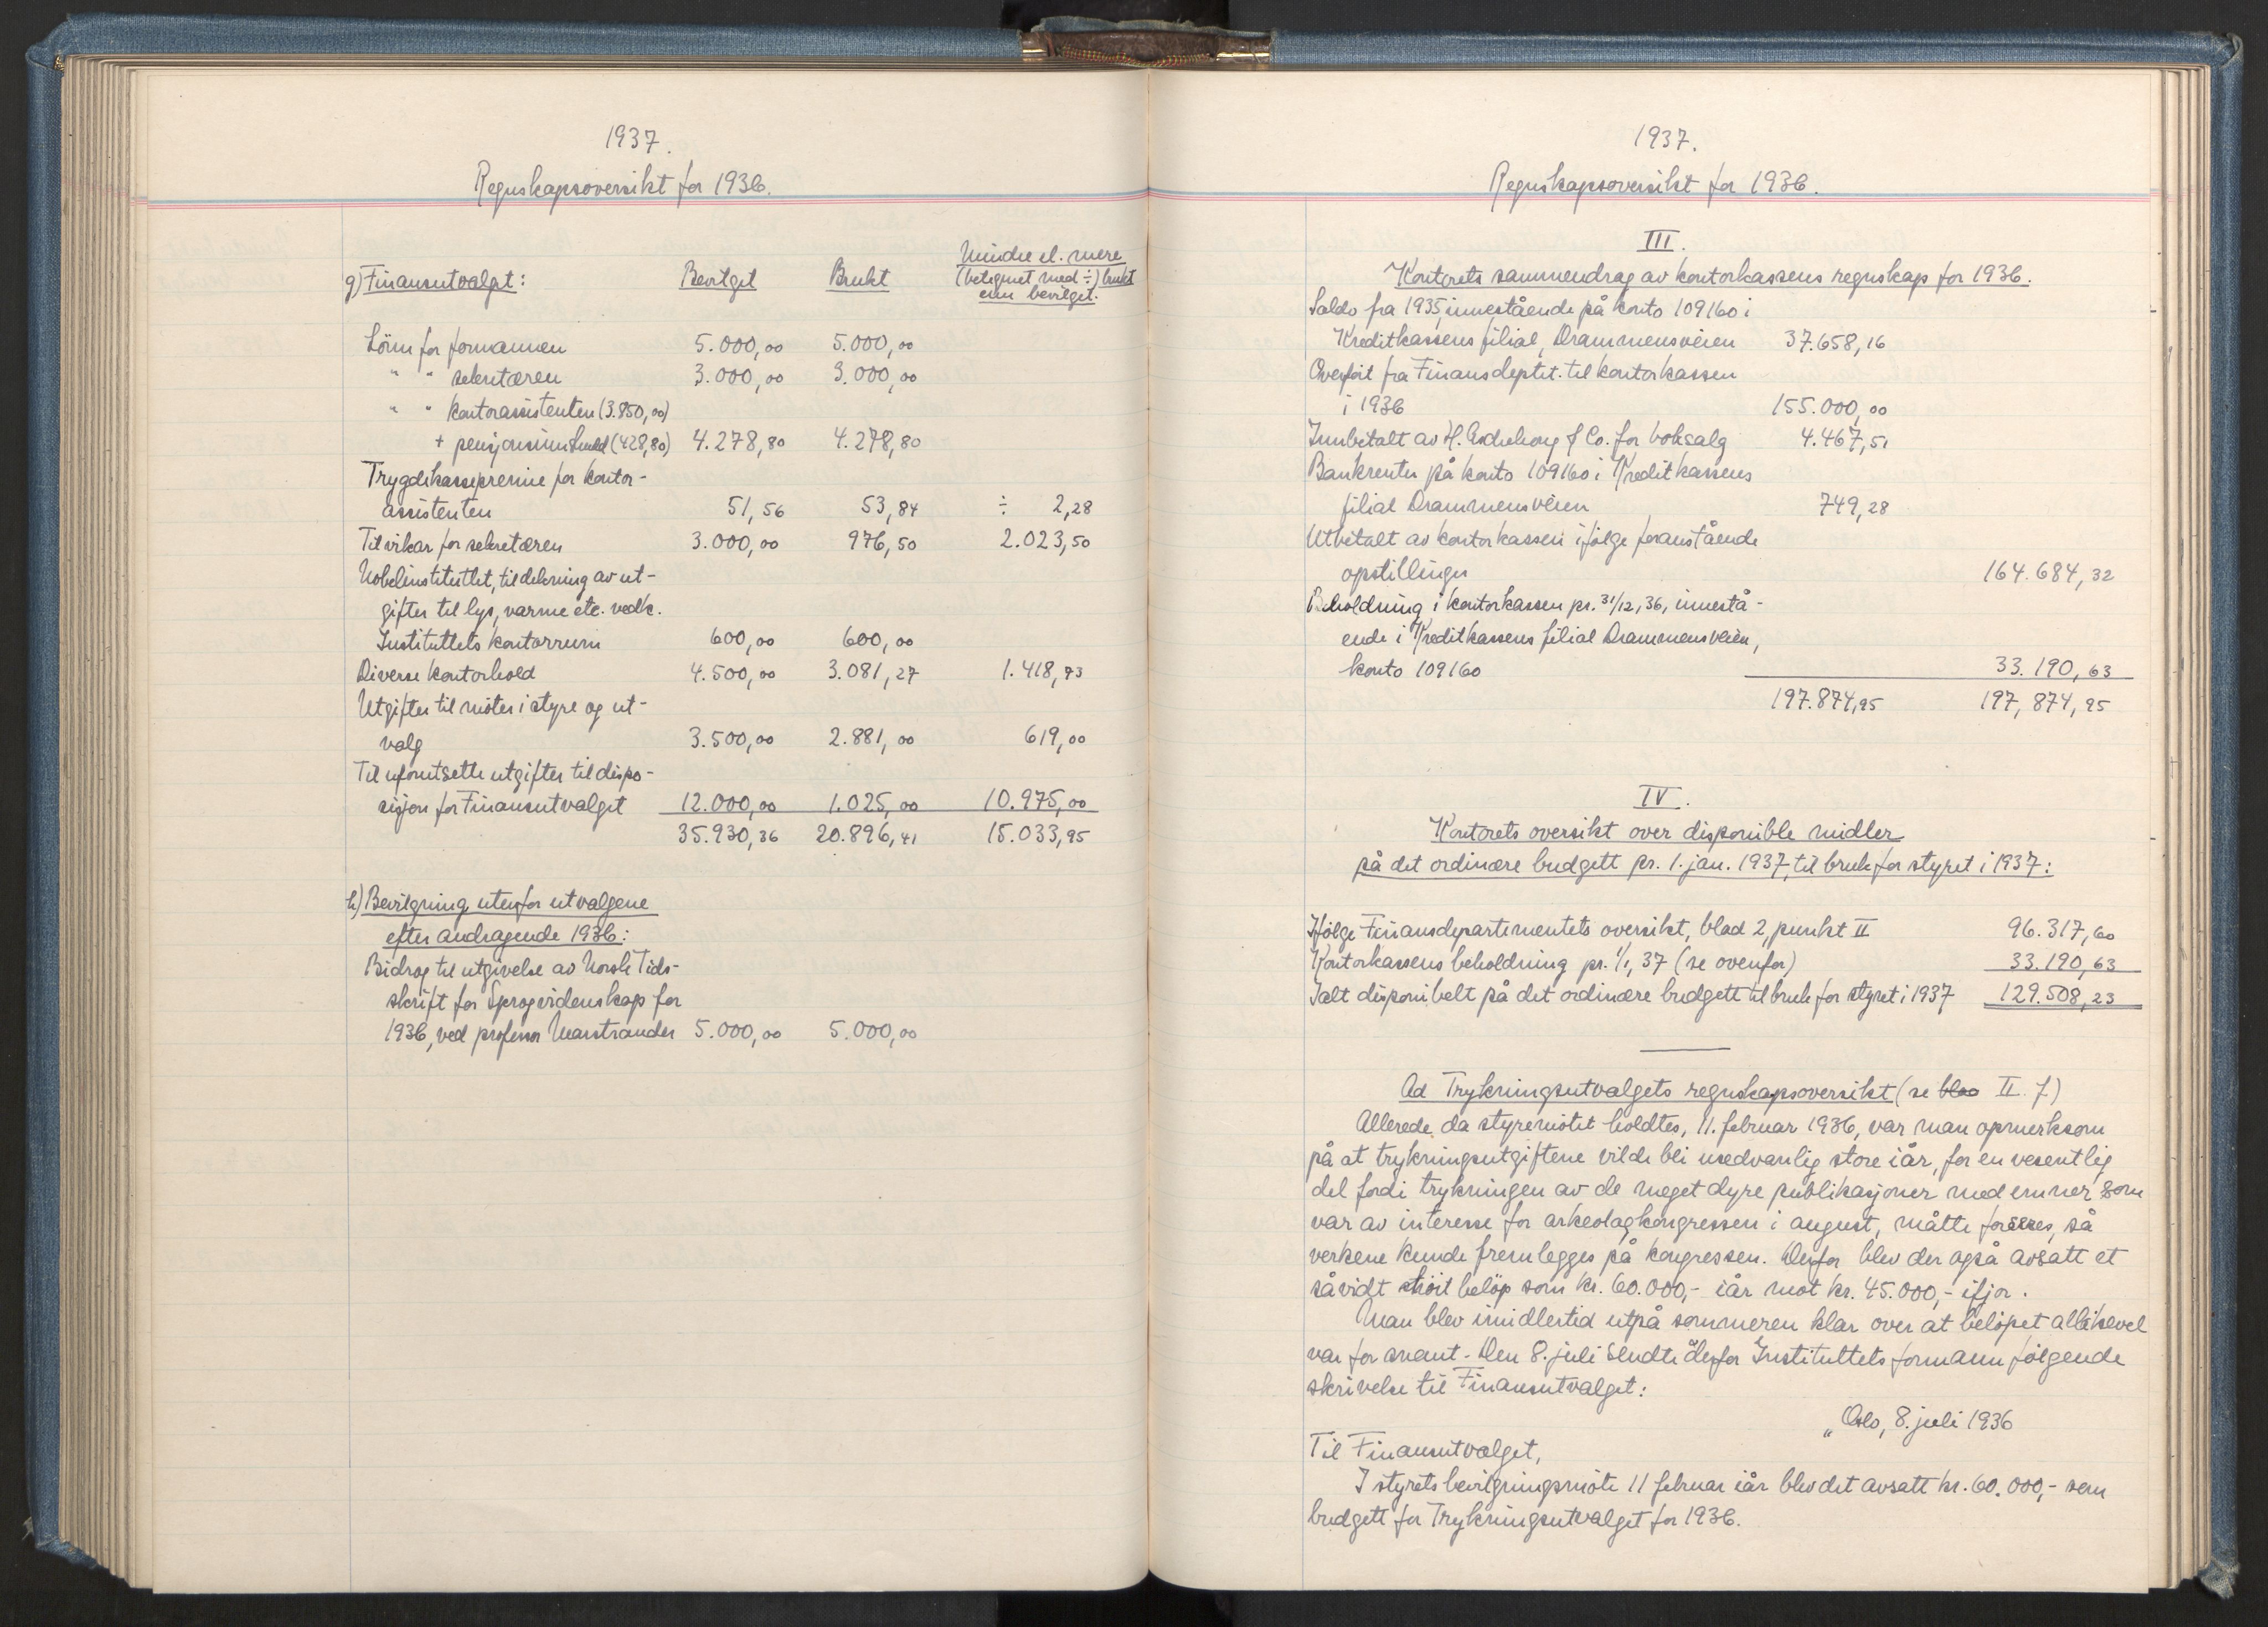 1937.
Regnskapsoversikt for 1936.
g) Finansutvalget: Bevilget Brukt Mindre el. mere
(betegnet med ÷) brukt
enn bevilget.
Lönn for formannen 5.000,00 5.000,00
" " sekretæren 3.000,00 3.000,00
" " kontorassistenten (3.850,00)
+ pensjonsinnskudd (428,80) 4.278,80 4.278,80
Trygdekassepremie for kontor-
assistenten 51,56 53,84 ÷ 2,28
Til vikar for sekretæren 3.000,00 976,50 2.023,50
Nobelinstituttet, til dekning av ut-
gifter til lys, varme etc. vedk.
Instituttets kontorrum 600,00 600,00
Diverse kontorhold 4.500,00 3.081,27 1.418,73
Utgifter til möter i styre og ut-
valg 3.500,00 2.881,00 619,00
Til uforutsette utgifter til dispo-
sisjon for Finansutvalget 12.000,00 1.025,00 10.975,00
35.930,36 20.896,41 15.033,95
h) Bevilgning utenfor utvalgene
efter andragende 1936:
Bidrag til utgivelse av Norsk Tids-
skrift for Sprogvidenskap for
1936, ved professor Marstrander 5.000,00 5.000,00
1937.
Regnskapsoversikt for 1936.
III.
Kontorets sammendrag av kontorkassens regnskap for 1936.
Saldo fra 1935, innestående på konto 109160 i
Kreditkassens filial, Drammensveien 37.658,16
Overfört fra Finansdeptet. til kontorkassen
i 1936 155.000,00
Innbetalt av H. Aschehoug & Co. for boksalg 4.467,51
Bankrenter på konto 109160 i Kreditkassens
filial Drammensveien 749,28
Utbetalt av kontorkassen ifölge foranstående
opstillinger 164.684,32
Beholdning i kontorkassen pr. 31/12, 36, innestå-
ende i Kreditkassens filial Drammensveien,
konto 109160 33.190,63
197.874,95 197,874,95
IV.
Kontorets oversikt over disponible midler
på det ordinære budgett pr. 1. jan. 1937, til bruk for styret i 1937:
Ifölge Finansdepartementets oversikt, blad 2, punkt II 96.317,60
Kontorkassens beholdning pr. 1/1, 37 (se ovenfor) 33.190,63
Ialt disponibelt på det ordinære budgett til bruk for styret i 1937 129.508,23
Ad Trykningsutvalgets regnskapsoversikt (se blad II. f)
Allerede da styremötet holdtes, 11. februar 1936, var man opmerksom
på at trykningsutgiftene vilde bli usedvanlig store iår, for en vesentlig
del fordi trykningen av de meget dyre publikasjoner med emner som
var av interesse for arkeologkongressen i august, måtte forseres, så
verkene kunde fremlegges på kongressen. Derfor blev der også avsatt et
såvidt höit belöp som kr. 60.000,- iår mot kr. 45.000,- ifjor.
Man blev imidlertid utpå sommeren klar over at belöpet allikevel
var for snaut. Den 8. juli sendte derfor Instituttets formann fölgende
skrivelse til Finansutvalget:
„Oslo, 8. juli 1936
Til Finansutvalget,
I styrets bevilgningsmöte 11 februar iår blev det avsatt kr. 60.000,- som
budgett for Trykningsutvalget for 1936.